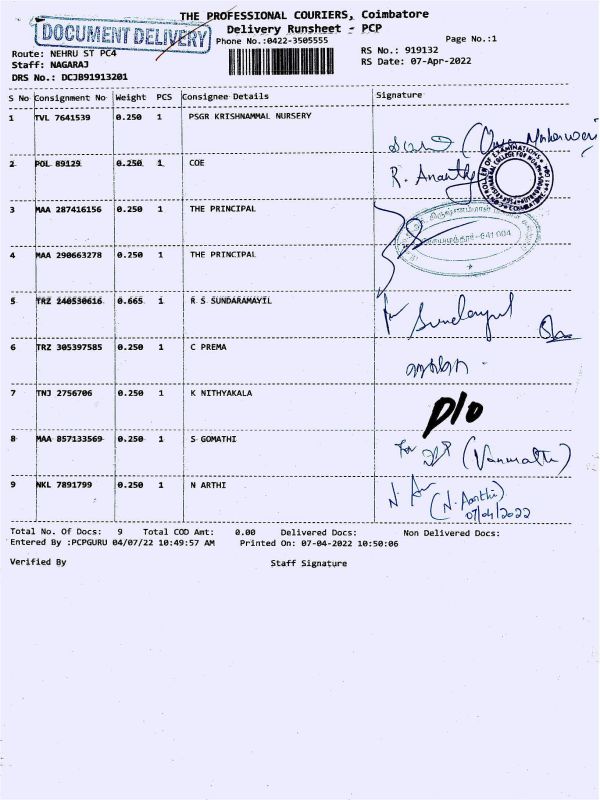 THE PROFESSIONAL COURIERS, Coimbatore
DOCUMENT DELIVERY
Delivery Runsheet - PCP
Phone No.:0422-3505555
Page No.:1
Route: NEHRU ST PC4
RS No.: 919132
Staff: NAGARAJ
RS Date: 07-Apr-2022
DRS No.: DCJB91913201
S No Consignment No Weight PCS Consignee Details Signature
1 TVL 7641539 0.250 1 PSGR KRISHNAMMAL NURSERY
2 POL 89129 0.250 1 COE R. Ananthy
3 MAA 287416156 0.250 1 THE PRINCIPAL
641 004
4 MAA 290663278 0.250 1 THE PRINCIPAL
5 TRZ 240530616 0.665 1 R S SUNDARAMAYIL
6 TRZ 305397585 0.250 1 C PREMA
7 TNJ 2756706 0.250 1 K NITHYAKALA D/O
8 MAA 857133569 0.250 1 S GOMATHI For (Vanmathi)
9 NKL 7891799 0.250 1 N ARTHI (N. Aarthi)
07/04/2022
Total No. Of Docs: 9 Total COD Amt: 0.00 Delivered Docs: Non Delivered Docs:
Entered By :PCPGURU 04/07/22 10:49:57 AM Printed On: 07-04-2022 10:50:06
Verified By Staff Signature